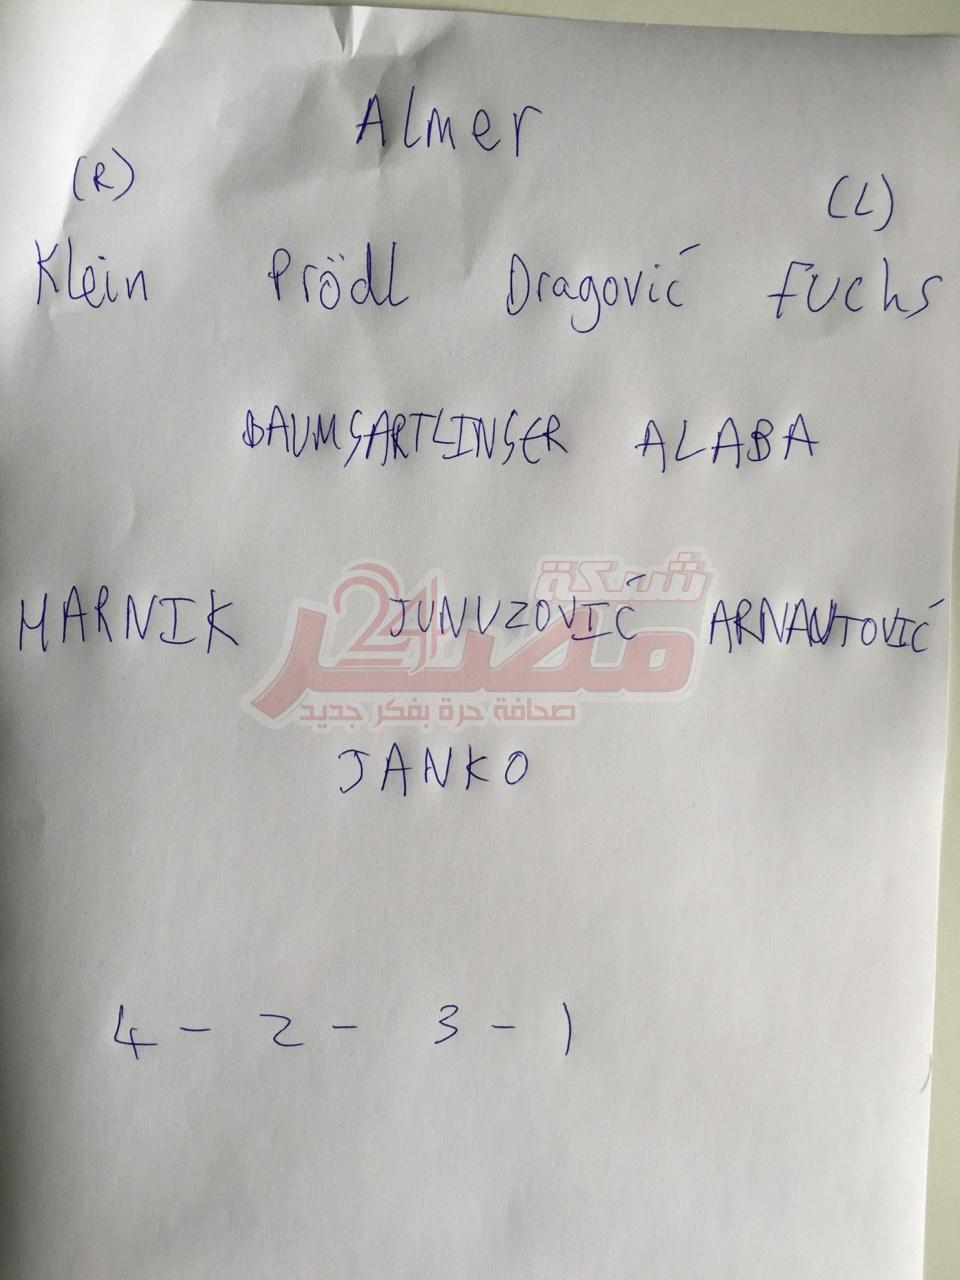 Almer
(R) (L)
Klein Prödl Dragović Fuchs
BAUMGARTLINGER ALABA
شبكة
HARNIK JUNUZOVIĆ ARNAUTOVIĆ
مصر 24
صحافة حرة بفكر جديد
JANKO
4 - 2 - 3 - 1